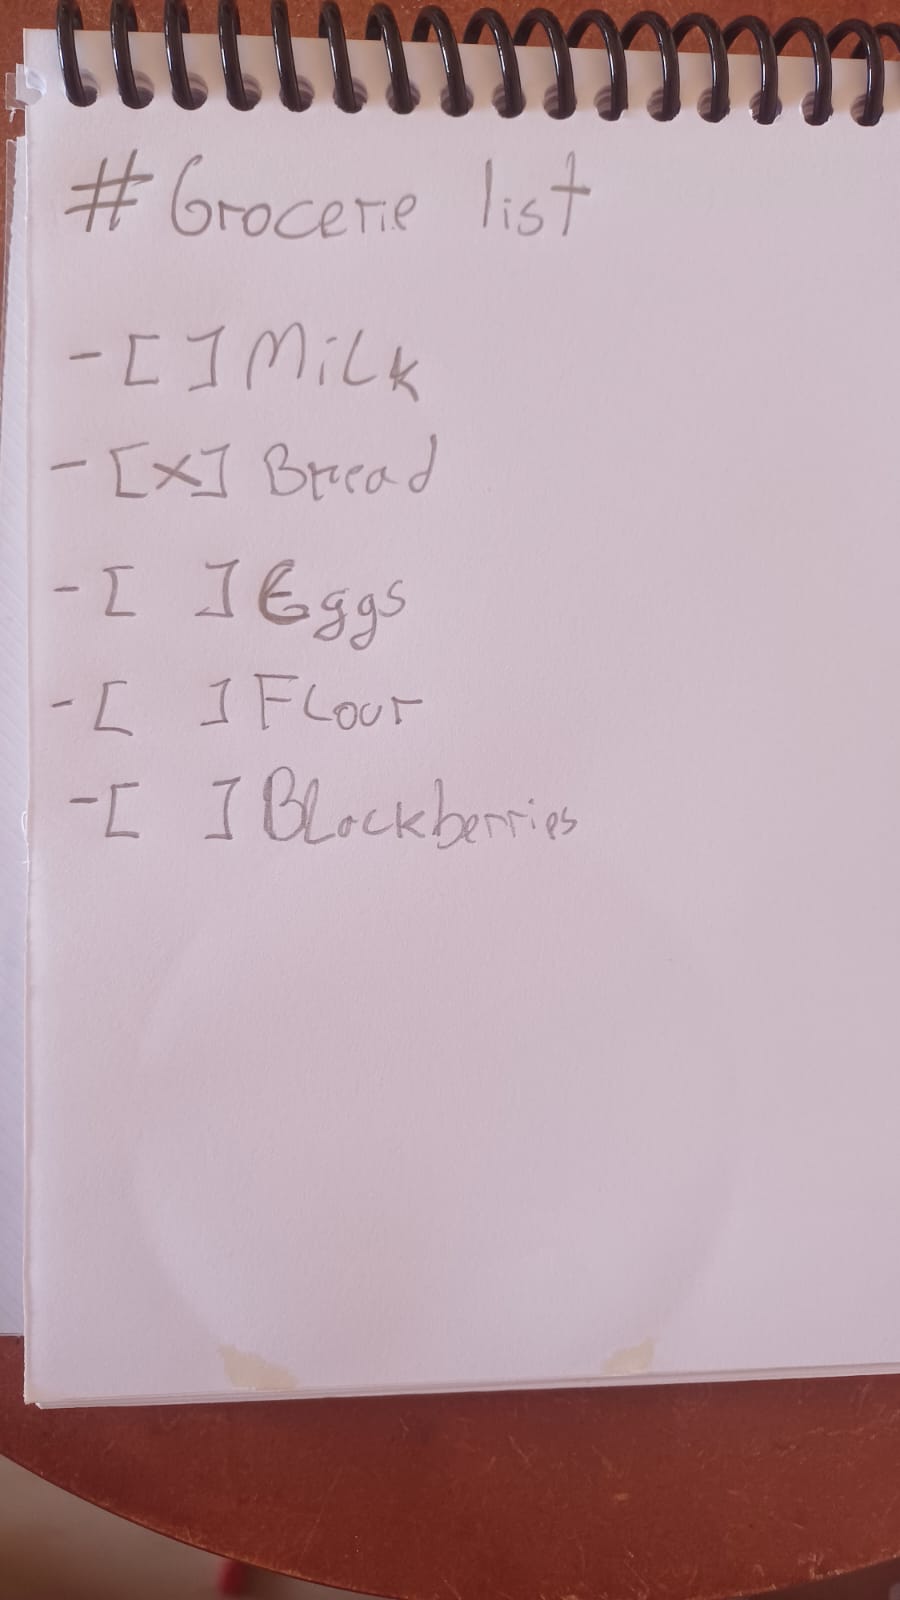 # Grocerie list
- [ ] Milk
- [x] Bread
- [ ] Eggs
- [ ] Flour
- [ ] Blackberries